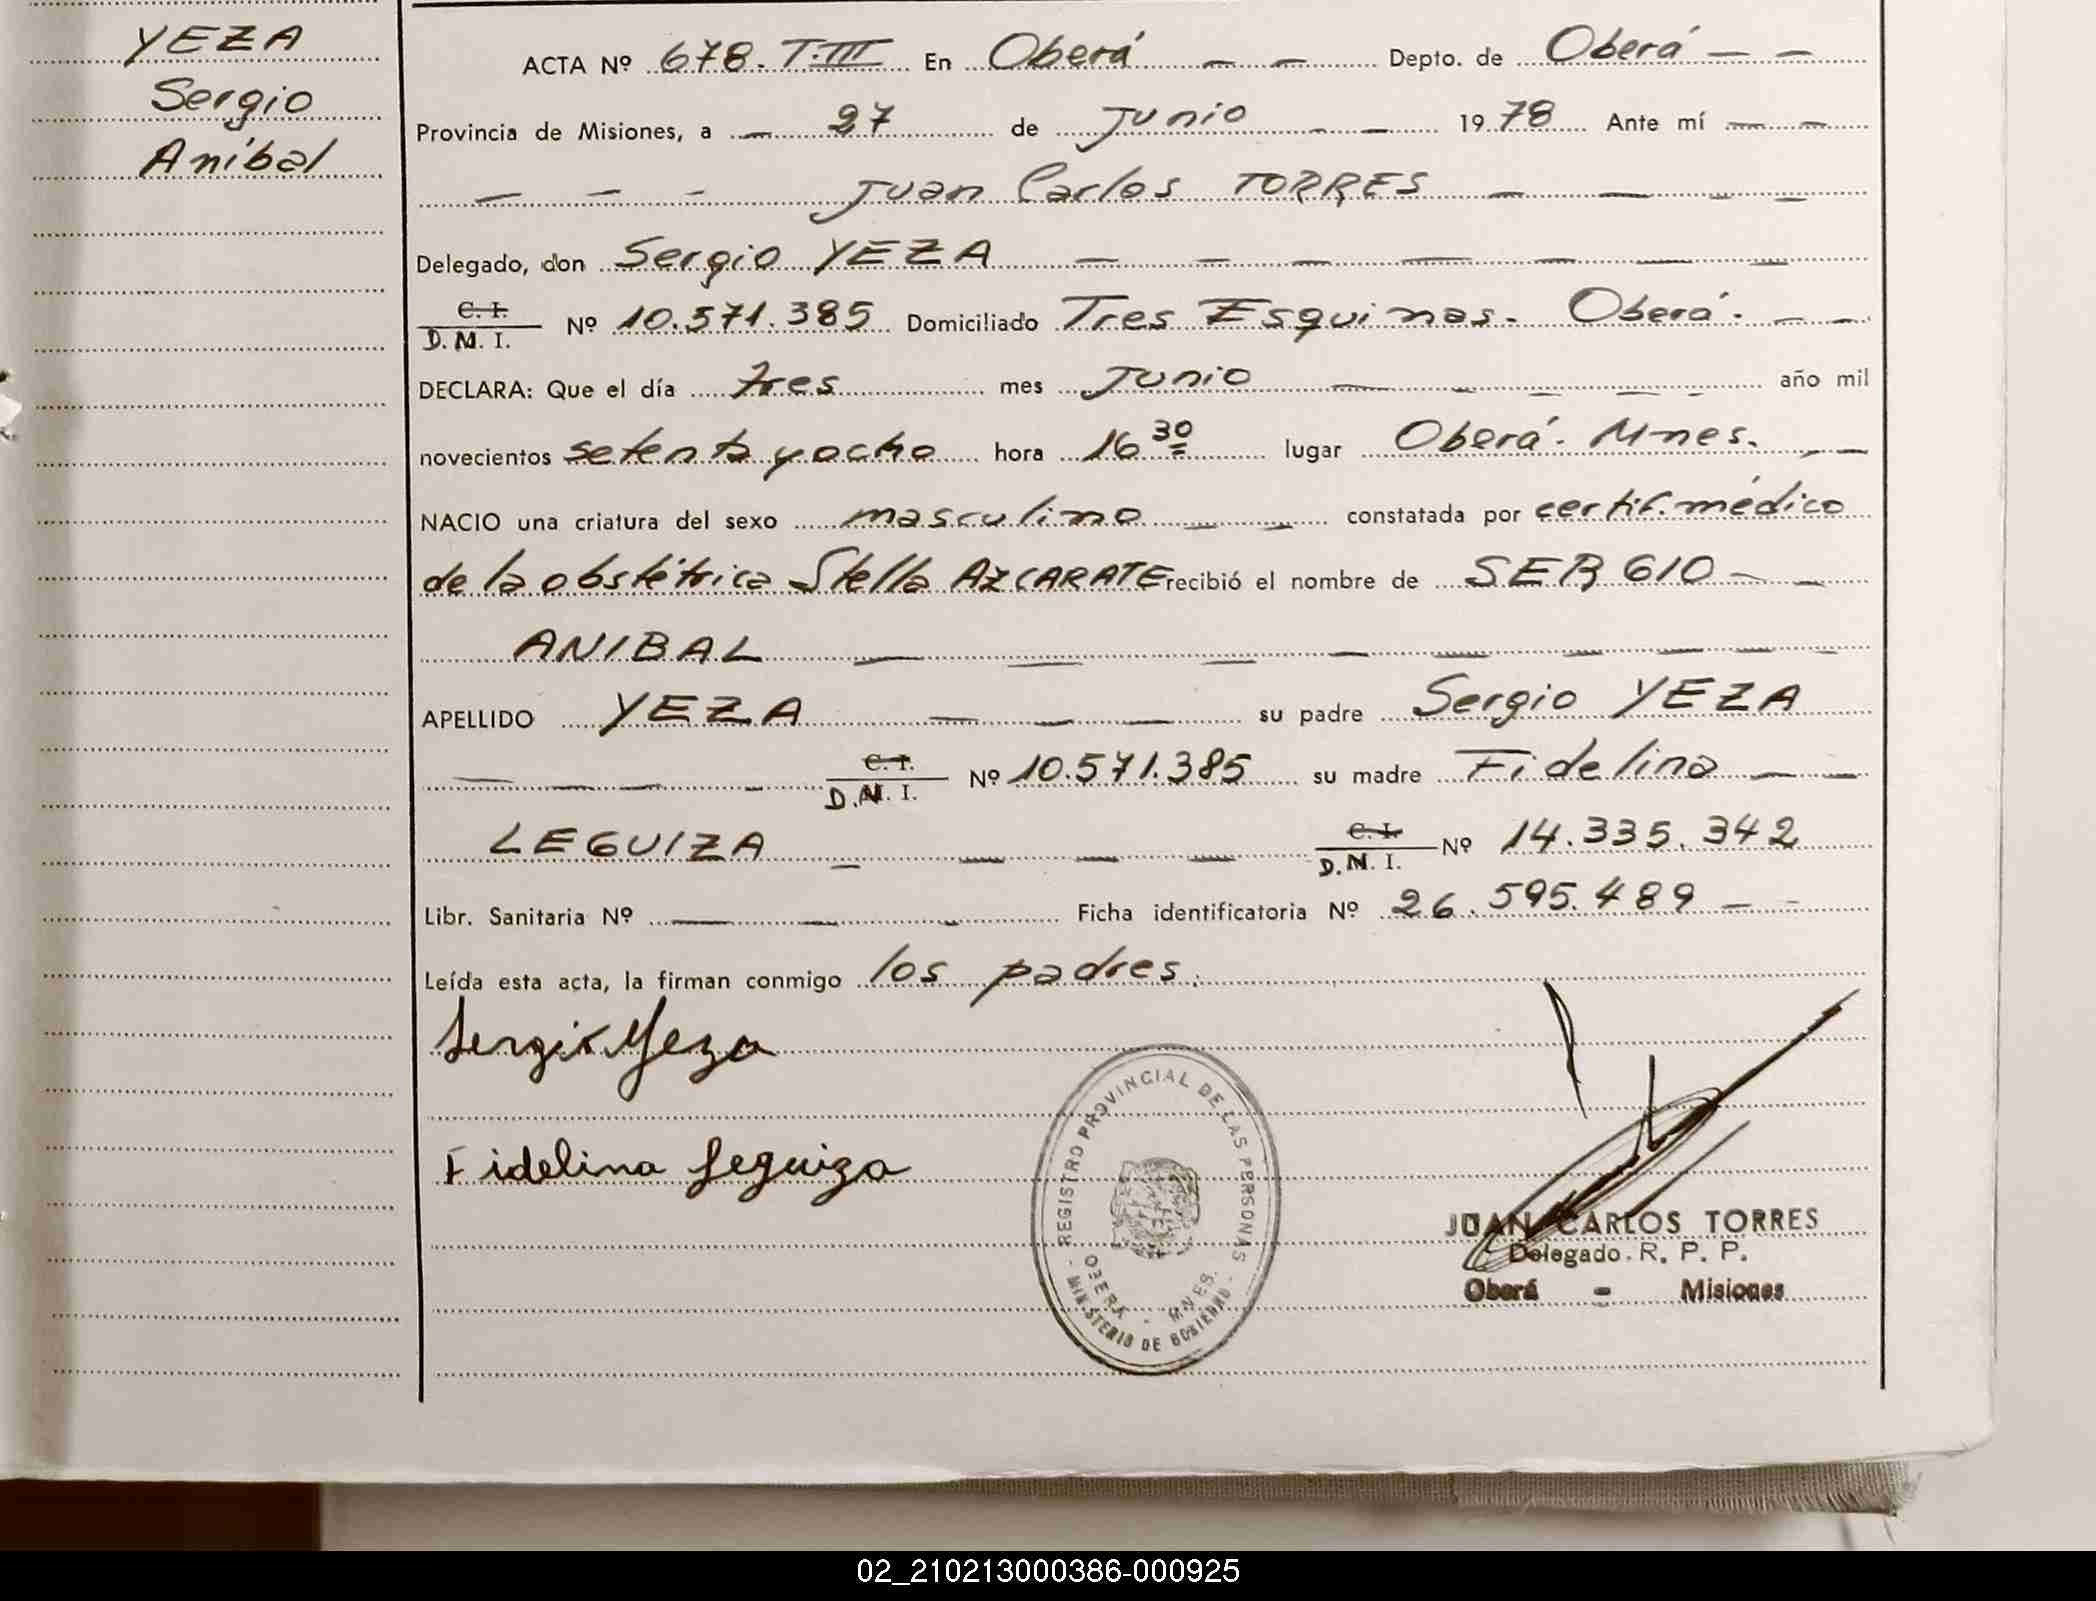 YEZA
Sergio
Aníbal
ACTA Nº 678. T.III En Oberá Depto. de Oberá
Provincia de Misiones, a 27 de Junio 1978 Ante mí
Juan Carlos TORRES
Delegado, don Sergio YEZA
C. I.
D.N. I. Nº 10.571.385 Domiciliado Tres Esquinas. Oberá.
DECLARA: Que el día tres mes Junio año mil
novecientos setenta y ocho hora 16 30 lugar Oberá. Mnes.
NACIO una criatura del sexo masculino constatada por certif. médico
de la obstétrica Stella AZCARATE recibió el nombre de SERGIO
ANIBAL
APELLIDO YEZA su padre Sergio YEZA
C. I.
D.N. I. Nº 10.571.385 su madre Fidelina
LEGUIZA C. I.
D.N. I. Nº 14.335.342
Libr. Sanitaria Nº Ficha identificatoria Nº 26.595.489
Leída esta acta, la firman conmigo los padres.
Sergio Yeza
Fidelina Leguiza
REGISTRO PROVINCIAL DE LAS PERSONAS
OBERA - MNES.
- MINISTERIO DE GOBIERNO -
JUAN CARLOS TORRES
Delegado R. P. P.
Oberá - Misiones
02_210213000386-000925